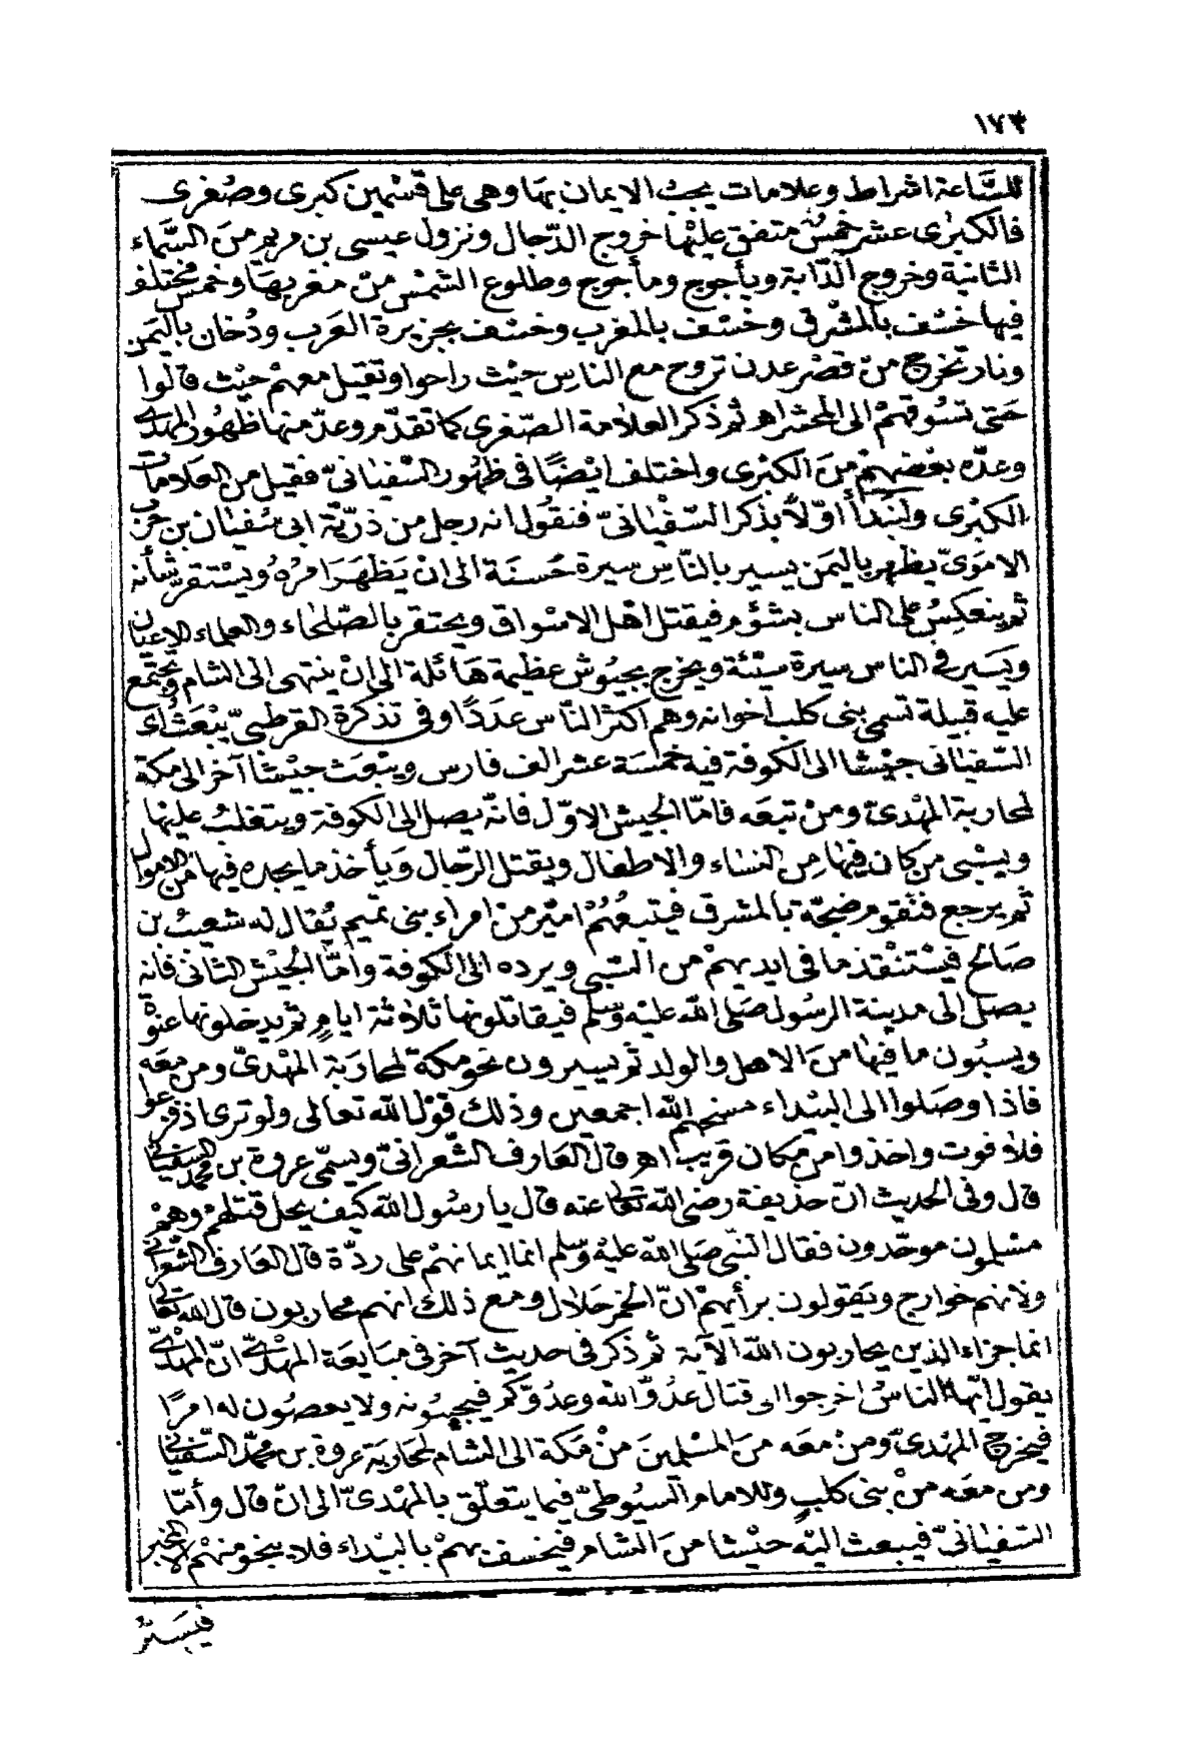 ١٧٣
للسَّاعة اشراط وعلامات يجب الايمان بها وهى على قسْمين كبرى وصُغرى
فالكبرى عشر خمسٌ متفق عليْها خروج الدّجال ونزول عيسى بن مريم منَ السَّماء
الثانية وخروج الدّابة ويأجوج ومأجوج وطلوع الشمْس منْ مغربهَا وخمس مختلف
فيها خسْف بالمشْرق وخسْف بالمغرب وخسْف بجزيرة العَرب ودُخان باليَمن
ونار تخرج منْ قصْر عدن تروح مع الناس حيْث راحوا وتقيل معهمْ حيْث قالوا
حَتى تسُوقهمْ الى المحشر اهـ ثم ذكر العلامة الصّغرى كما تقدّم وعدّ منها ظهُور المهدىّ
وعدّه بعْضهمْ منَ الكبْرى واختلف ايْضًا فى ظهُور السّفيانىّ فقيل من العَلامات
الكبْرى ولنبْدأ اوّلاً بذكر السّفْيانىّ فنقُول انه رجل من ذرّيّة ابى سُفيان بن حرْب
الامَوىّ يظهر باليمَن يسير بالنّاس سيرة حَسَنَة الى انْ يَظهَرَ امْرُهُ ويسْتقر شأنه
ثم ينعكِسُ على الناس بشؤم فيقتل اهْل الاسْواق ويحتقر بالصّلحَاء والعلماء الاعيان
ويَسير فى الناس سيرة سيّئة ويخرج بجيُوش عظيمة هَائلة الى انْ ينتهى الى الشام ويجْتمع
عليه قبيلة تسمى بنى كلب اخوانه وهم اكثر النّاس عدَدًا وفى تذكرة القرطبىّ يبْعَث
السّفيانى جيْشا الى الكوفة فيه خمْسَة عشر الف فارس ويبْعَث جيْشا آخر الى مكة
لمحاربة المهْدىّ ومنْ تبعَه فامّا الجيش الاوّل فانّه يصل الى الكوفة ويتغلبُ عليْها
ويسْبى من كان فيهَا مِن النسَاء والاطفال ويقتل الرّجال وَيأخذ ما يجده فيها من الاموال
ثم يرجع فتقوم ضجّة بالمشرق فيتبعُهُمْ اميْر منْ امراء بنى تميم يُقال له شعيْبُ بن
صَالح فيسْتنقذ ما فى ايديهمْ من السّبى ويرده الى الكوفة وأمّا الجيْش الثانى فانه
يصل الى مدينة الرسُول صَلى الله عليْه وسلم فيقاتلونها ثلاثة ايامٍ ثم يدخلونها عنوة
ويسبُون ما فيهَا منَ الاهل والولد ثم يسيرون نحو مكة لمحاربة المهْدىّ ومن معَه
فاذا وصَلوا الى البيْداء مسخهم الله اجمعين وذلك قوْل الله تعالى ولو ترى اذ فزعوا
فلا فوت واخذوا من مكان قريب اهـ قال العَارف الشّعرانىّ ويسمّى عروة بن محمد السفيانى
قال وفى الحديث انّ حذيفة رضى الله تعالى عنه قال يا رسُول الله كيْف يحل قتلهمْ وهمْ
مسْلمون موحّدون فقال النّبى صَلى الله عليْه وَسلم انما ايمانهمْ على ردّة قال العَارف الشّعرانى
ولانهم خوارج ويَقولون برأيهمْ انّ الخمر حَلال ومع ذلك انهم محاربون قال الله تعَالى
انما جزاء الذين يحاربون الله الآية ثم ذكر فى حديث آخر فى مبَايعَة المهْدىّ انّ المهْدىّ
يقول ايّها الناسُ اخرجوا الى قتال عدُوّ الله وعدُوّكم فيجيبُونه ولا يعصُون له امرًا
فيخرج المهْدىّ ومنْ معَه منَ المسْلمينَ منْ مكة الى الشام لمحاربَة عروة بن محمّد السّفيَانى
ومن معَه منْ بنى كلب وللامام السيُوطىّ فيما يتعلّق بالمهْدىّ الى انْ قال وأمّا
السّفيانىّ فيبعث اليْه جيْشا منَ الشام فيخسف بهمْ بالبيْداء فلا ينجو منهمْ الا المخبر
فيَسيرُ